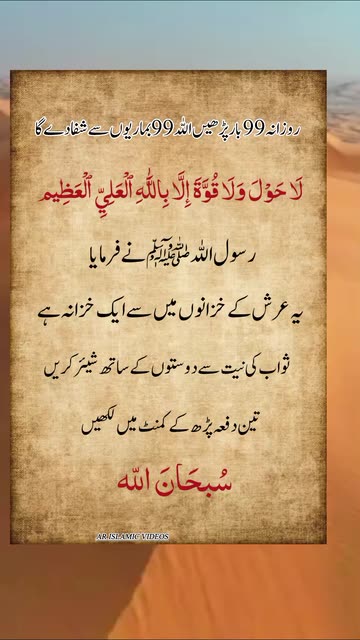 روزانہ 99 بار پڑھیں اللہ 99 بماریوں سے شفا دے گا
لَا حَوْلَ وَلَا قُوَّةَ إِلَّا بِاللّٰهِ الْعَلِيِّ الْعَظِيم
رسول اللہ ﷺ نے فرمایا
یہ عرش کے خزانوں میں سے ایک خزانہ ہے
ثواب کی نیت سے دوستوں کے ساتھ شیئر کریں
تین دفعہ پڑھ کے کمنٹ میں لکھیں
سُبحَانَ اللّٰه
AR ISLAMIC VIDEOS